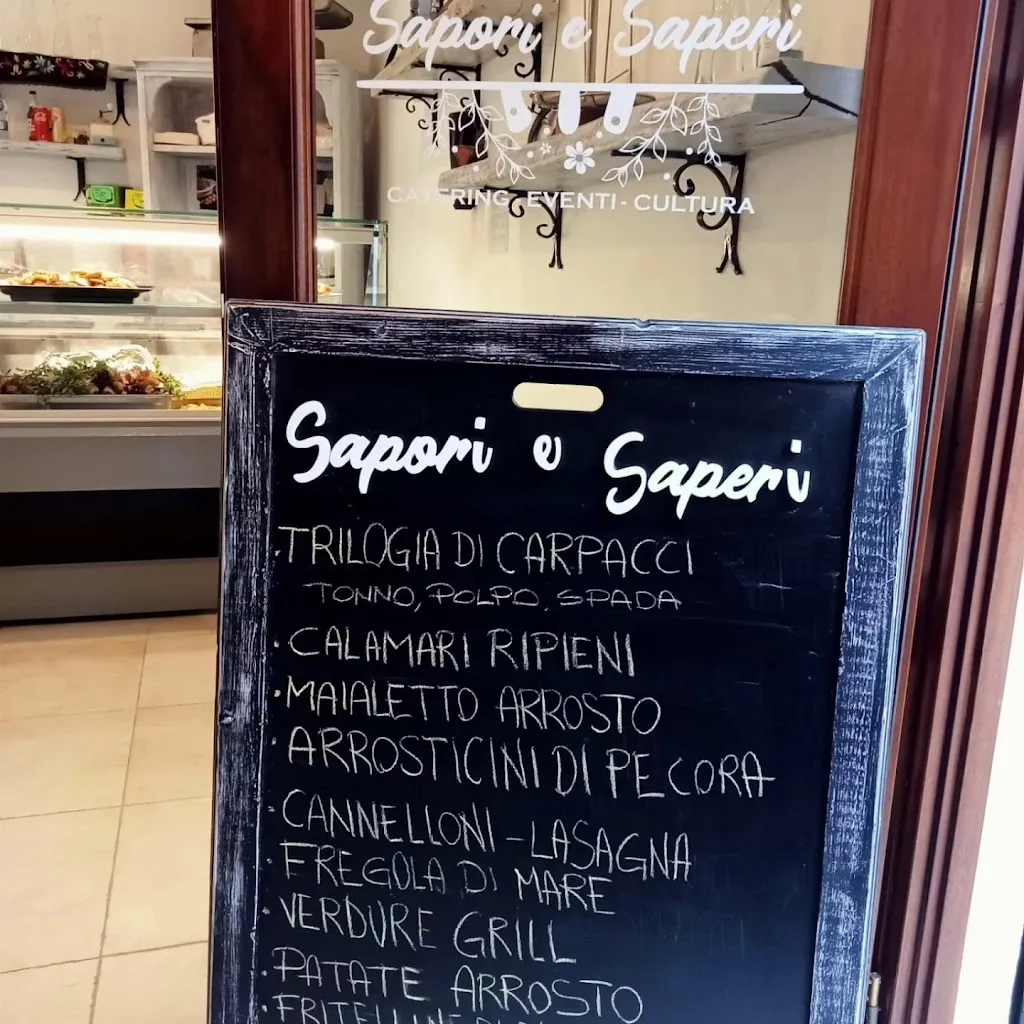 Sapori e Saperi
CATERING - EVENTI - CULTURA
Sapori e Saperi
TRILOGIA DI CARPACCI
TONNO, POLPO, SPADA
· CALAMARI RIPIENI
· MAIALETTO ARROSTO
· ARROSTICINI DI PECORA
· CANNELLONI - LASAGNA
· FREGOLA DI MARE
· VERDURE GRILL
· PATATE ARROSTO